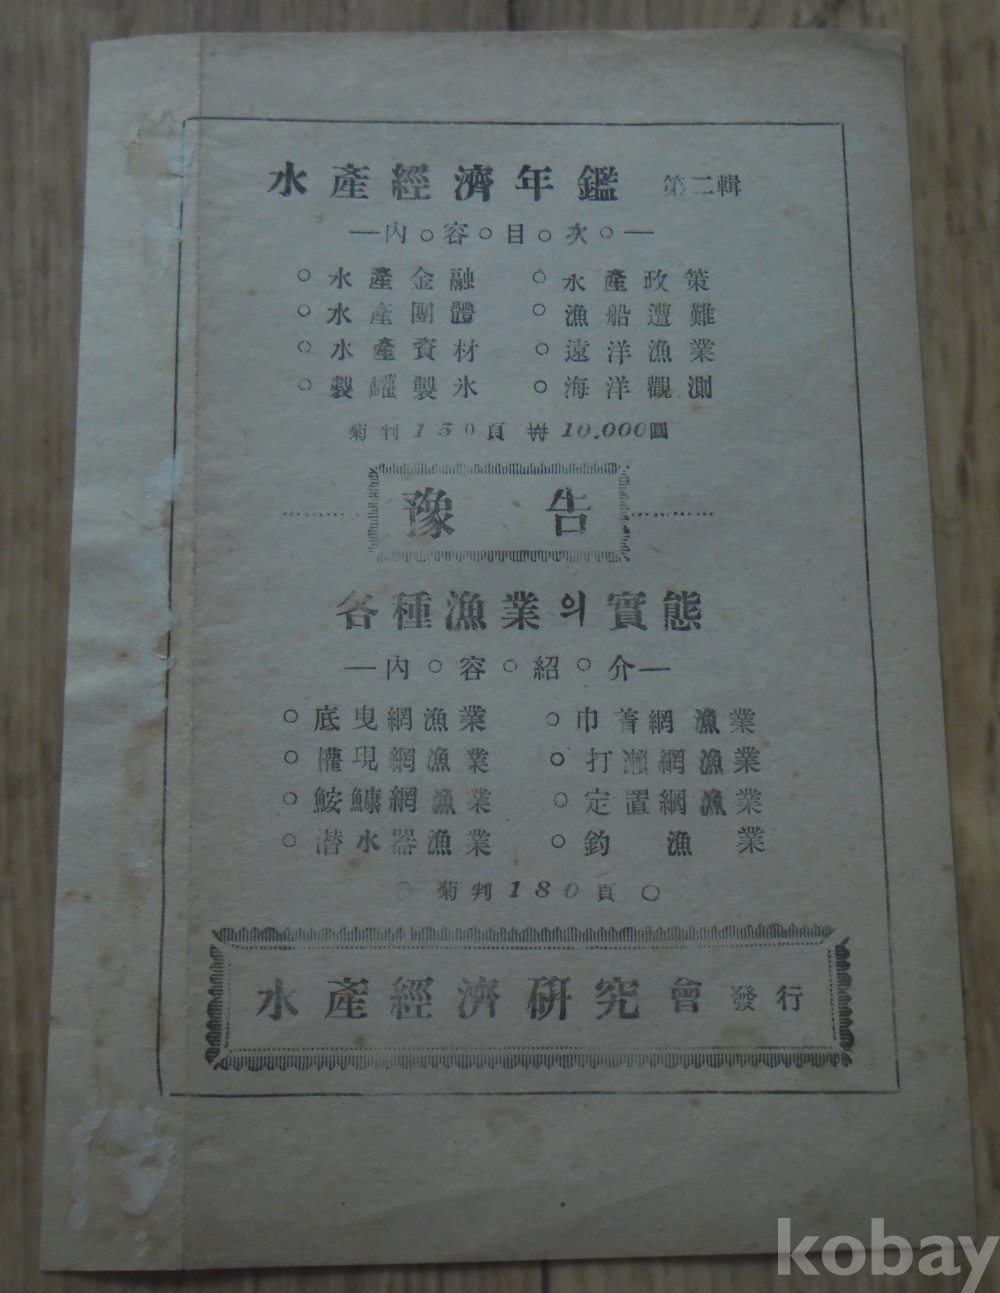 水產經濟年鑑 第二輯
―內○容○目○次○―
○水產金融 ○水產政策
○水產團體 ○漁船遭難
○水產資材 ○遠洋漁業
○製罐製氷 ○海洋觀測
菊判150頁 ₩10,000圓
豫告
各種漁業의實態
―內○容○紹○介―
○底曳網漁業 ○巾着網漁業
○權現網漁業 ○打瀨網漁業
○鮟鱇網漁業 ○定置網漁業
○潜水器漁業 ○釣漁業
○菊判180頁○
水產經濟硏究會 發行
kobay